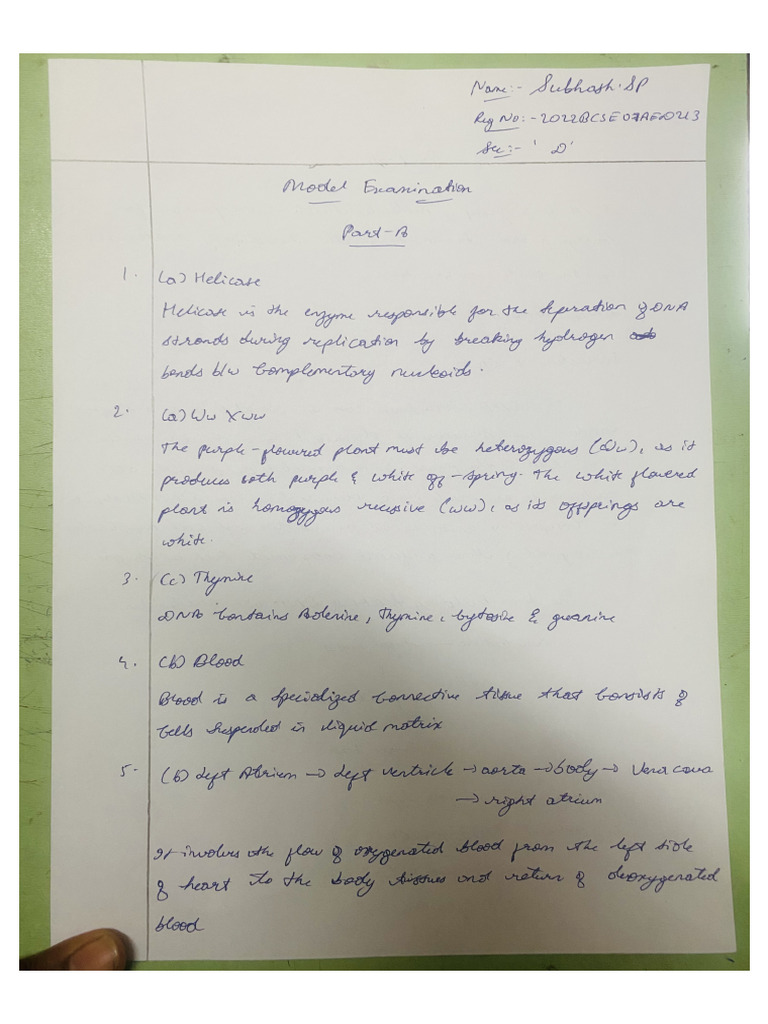 Name:- Subhash.SP
Reg No:- 2022BCSE07AED213
Sec:- 'D'
Model Examination
Part-A
1. (a) Helicase
Helicase is the enzyme responsible for the seperation of DNA
stronds during replication by breaking hydrogen
bonds b/w Complementory nucleoids.
2. (a) Ww X ww
The purple-flowered plant must be heterozygous (Ww), as it
produces both purple & white off-spring. The white flowered
plant is homozygous recessive (ww), as its offsprings are
white.
3. (c) Thymine
DNA Contains Adenine, Thymine, Cytosine & guanine
4. (b) Blood
Blood is a specialized Connective tissue that Consists of
Cells suspended in liquid matrix
5- (b) Left Atrium → Left ventricle → aorta → body → Vena cava
→ right atrium
It involves the flow of oxygenated blood from the left side
of heart to the body tissues and return of deoxygenated
blood